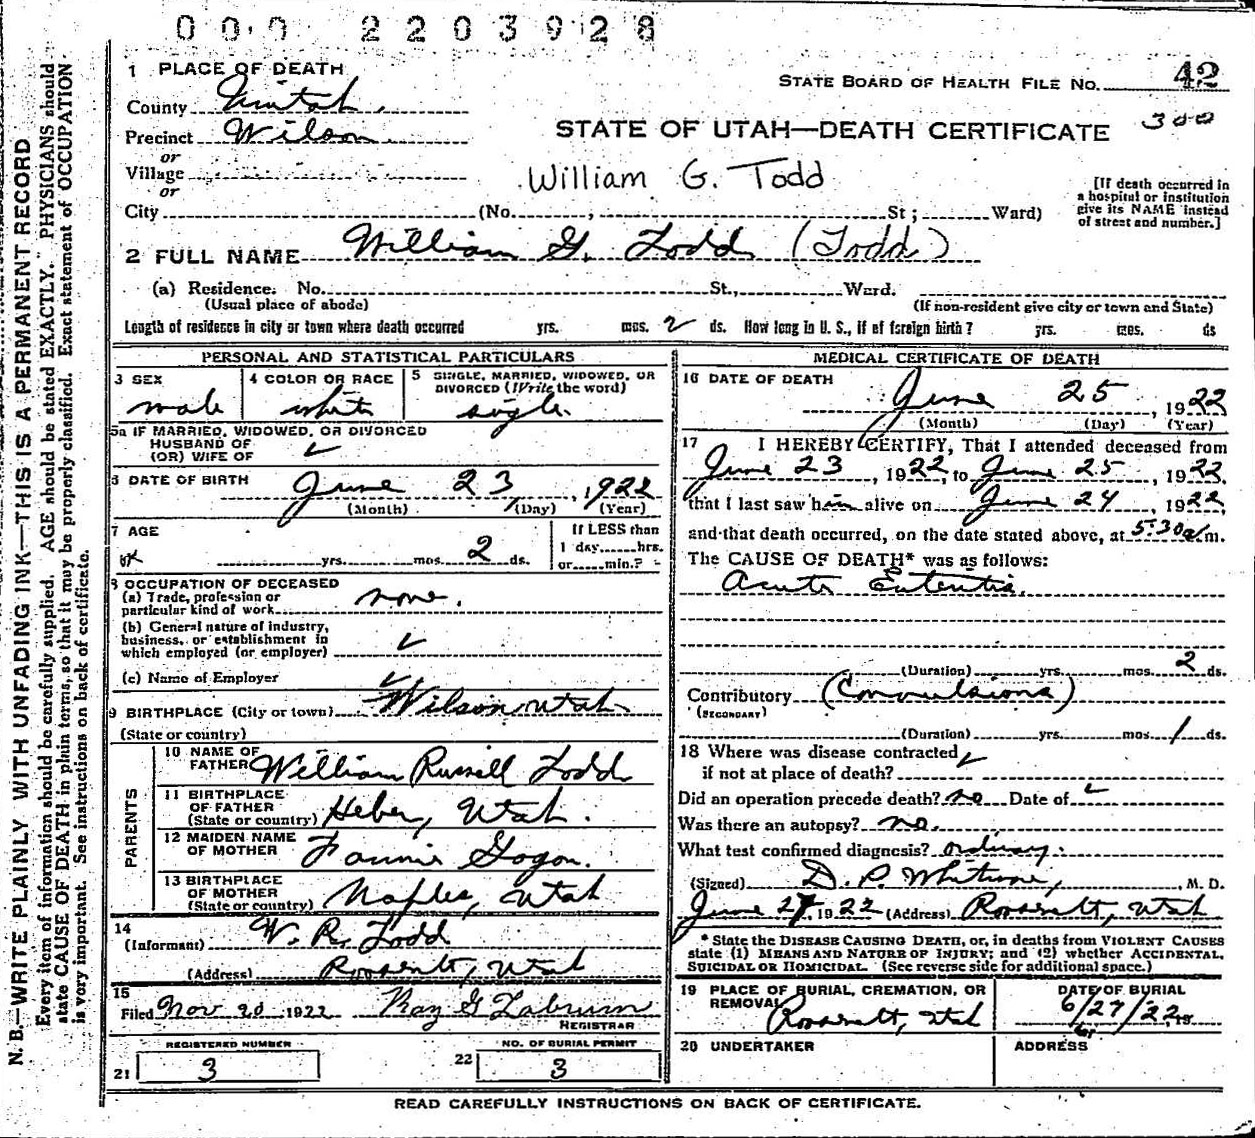 000 2203928
1 PLACE OF DEATH
STATE BOARD OF HEALTH FILE No. 42
County Uintah
Precinct Wilson
STATE OF UTAH—DEATH CERTIFICATE 300
or
Village
or
William G. Todd
[If death occurred in a hospital or institution give its NAME instead of street and number.]
City (No. , St ; Ward)
2 FULL NAME William G. Todd (Todd)
(a) Residence. No. St., Ward.
(Usual place of abode) (If non-resident give city or town and State)
Length of residence in city or town where death occurred yrs. mos. 2 ds. How long in U. S., if of foreign birth? yrs. mos. ds
PERSONAL AND STATISTICAL PARTICULARS
3 SEX
male
4 COLOR OR RACE
white
5 SINGLE, MARRIED, WIDOWED, OR
DIVORCED (Write the word)
single
5a IF MARRIED, WIDOWED, OR DIVORCED
HUSBAND OF
(OR) WIFE OF
6 DATE OF BIRTH June 23, 1922
(Month) (Day) (Year)
7 AGE
yrs. mos. 2 ds.
If LESS than
1 day hrs.
or min.?
8 OCCUPATION OF DECEASED
(a) Trade, profession or
particular kind of work none.
(b) General nature of industry,
business, or establishment in
which employed (or employer)
(c) Name of Employer
9 BIRTHPLACE (City or town) Wilson Utah
(State or country)
PARENTS
10 NAME OF
FATHER William Russell Todd
11 BIRTHPLACE
OF FATHER
(State or country) Heber, Utah.
12 MAIDEN NAME
OF MOTHER Fannie Gagon.
13 BIRTHPLACE
OF MOTHER
(State or country) Naples, Utah
14
(Informant) W. R. Todd
(Address) Roosevelt, Utah
15
Filed Nov 20 1922 Ray G Labrum
REGISTRAR
REGISTERED NUMBER
21 3
NO. OF BURIAL PERMIT
22 3
MEDICAL CERTIFICATE OF DEATH
16 DATE OF DEATH
June 25, 1922
(Month) (Day) (Year)
17 I HEREBY CERTIFY, That I attended deceased from
June 23, 1922, to June 25, 1922,
that I last saw him alive on June 24, 1922,
and that death occurred, on the date stated above, at 5:30 a/m.
The CAUSE OF DEATH* was as follows:
Acute
(Duration) yrs. mos. 2 ds.
Contributory (Convulsions)
(SECONDARY)
(Duration) yrs. mos. 1 ds.
18 Where was disease contracted
if not at place of death?
Did an operation precede death? no Date of
Was there an autopsy? no.
What test confirmed diagnosis? ordinary.
(Signed) D. P. Whitmore, M. D.
June 27, 1922 (Address) Roosevelt, Utah
* State the DISEASE CAUSING DEATH, or, in deaths from VIOLENT CAUSES
state (1) MEANS AND NATURE OF INJURY; and (2) whether ACCIDENTAL,
SUICIDAL OR HOMICIDAL. (See reverse side for additional space.)
19 PLACE OF BURIAL, CREMATION, OR
REMOVAL
Roosevelt, Utah
DATE OF BURIAL
6/27/22
20 UNDERTAKER
ADDRESS
READ CAREFULLY INSTRUCTIONS ON BACK OF CERTIFICATE.
N. B.—WRITE PLAINLY WITH UNFADING INK—THIS IS A PERMANENT RECORD
Every item of information should be carefully supplied. AGE should be stated EXACTLY. PHYSICIANS should
state CAUSE OF DEATH in plain terms, so that it may be properly classified. Exact statement of OCCUPATION
is very important. See instructions on back of certificate.